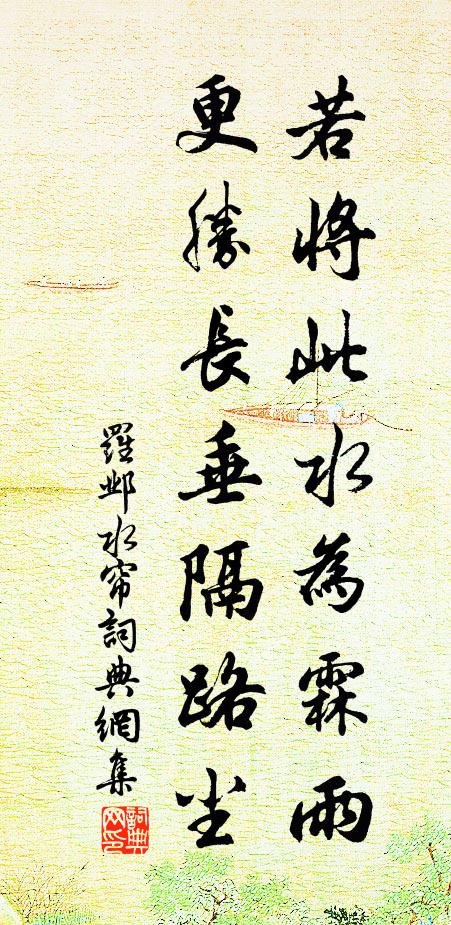 若將此水為霖雨
更勝長垂隔路尘
羅邺水帘詞典網集
詞典
网印